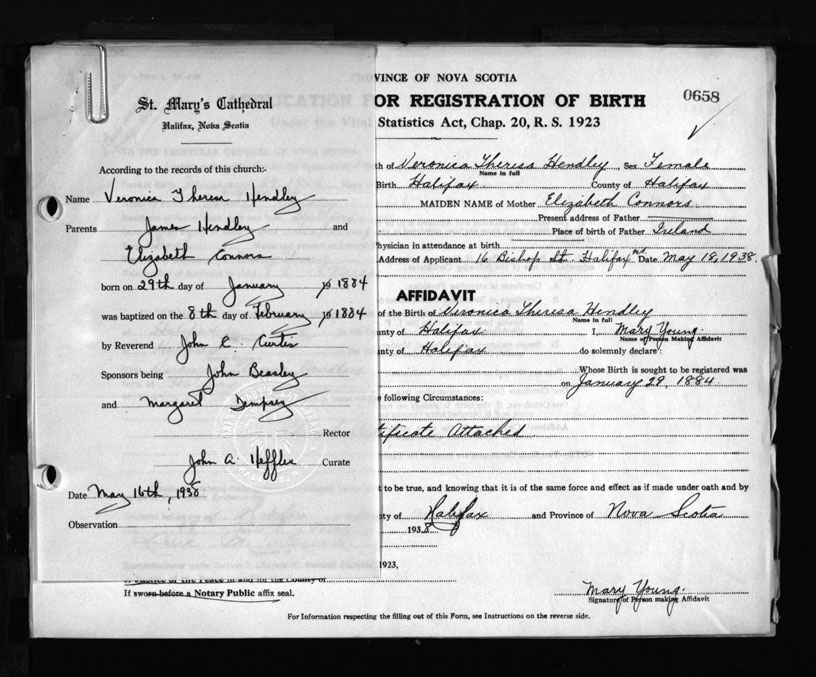 St. Mary's Cathedral
Halifax, Nova Scotia
According to the records of this church:-
Name Veronica Theresa Hendley
Parents James Hendley and
Elizabeth Connors
born on 29th day of January 19 1884
was baptized on the 8th day of February 19 1884
by Reverend John E. Curtis
Sponsors being John Beasley
and Margaret Dempsey
Rector
John A. Heffler Curate
Date May 16th, 1938
Observation
VINCE OF NOVA SCOTIA
OR REGISTRATION OF BIRTH 0658
Statistics Act, Chap. 20, R. S. 1923
th of Veronica Theresa Hendley Sex Female
Name in full
Birth Halifax County of Halifax
MAIDEN NAME of Mother Elizabeth Connors.
Present address of Father
Place of birth of Father Ireland
hysician in attendance at birth
Address of Applicant 16 Bishop St. Halifax Date May 18, 1938
AFFIDAVIT
of the Birth of Veronica Theresa Hendley
Name in full
unty of Halifax I, Mary Young.
Name of Person Making Affidavit
unty of Halifax do solemnly declare:
Whose Birth is sought to be registered was
on January 29, 1884.
e following Circumstances:
tificate Attached
t to be true, and knowing that it is of the same force and effect as if made under oath and by
ty of Halifax and Province of Nova Scotia
1938
1923,
If sworn before a Notary Public affix seal.
Mary Young.
Signature of Person making Affidavit
For Information respecting the filling out of this Form, see Instructions on the reverse side.